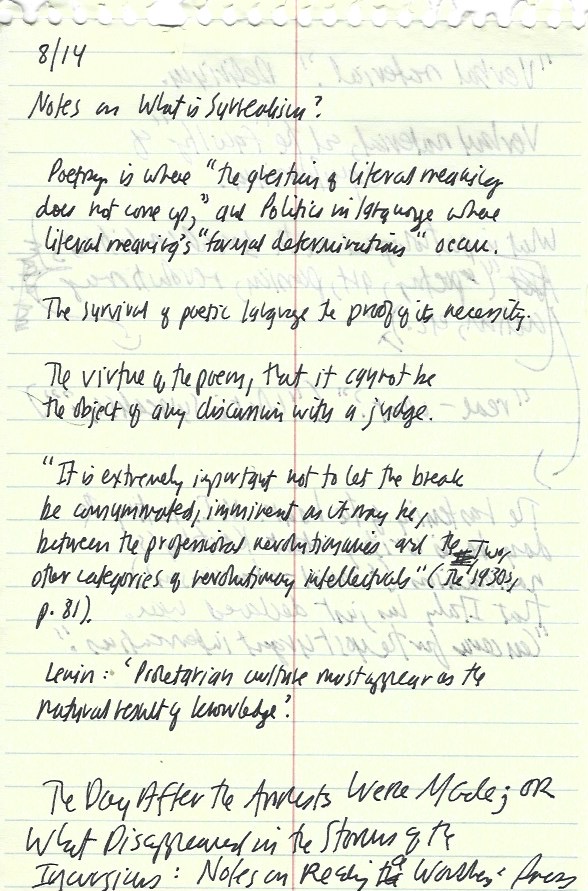 8/14
Notes on What is Surrealism?
Poetry is where "the question of literal meaning
does not come up," and Politics in language where
literal meaning's "formal determinations" occur.
The survival of poetic language the proof of its necessity.
The virtue of the poem, that it cannot be
the object of any discussion with a judge.
"It is extremely important not to let the break
be consummated, imminent as it may be,
between the professional revolutionaries and the two
other categories of revolutionary intellectuals" (The 1930s,
p. 81).
Lenin: 'Proletarian culture must appear as the
natural result of knowledge'.
The Day After the Arrests Were Made; OR
What Disappeared in the Storms of the
Incursions: Notes on Reading the Press